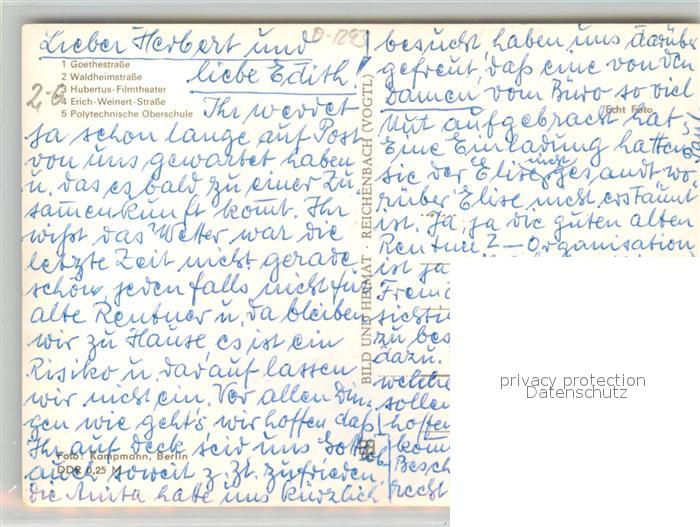 Lieber Herbert und
liebe Edith!
D-1293
1 Goethestraße
2 Waldheimstraße
3 Hubertus-Filmtheater
4 Erich-Weinert-Straße
5 Polytechnische Oberschule
Ihr werdet
ja schon lange auf Post
von uns gewartet haben
u. das es bald zu einer Zu
sammenkunft kommt. Ihr
wißt das Wetter war die
letzte Zeit nicht gerade
schön, jedenfalls nicht für
alte Rentner u. da bleiben
wir zu Hause, es ist ein
Risiko u. darauf lassen
wir nicht ein. Vor allen Din-
gen wie geht's wir hoffen daß
Ihr auf Deck seid uns
auch soweit z. Zt. zufrieden,
die Anita hatte uns kürzlich
Foto: Kampmann, Berlin
DDR 0,25 M
BILD UND HEIMAT REICHENBACH (VOGTL)
besucht, haben uns darüber
gefreut, daß eine von den
Damen vom Büro so viel
Echt Foto
Mut aufgebracht hat.
Eine Einladung hatten
sie der Elise gesandt wo-
rüber Elise nicht erstaunt
ist. Ja, ja die guten alten
Rentner? – Organisation
ist ja
zu bes
dazu.
welche
sollen
hoffen
kom
Besch
recht
privacy protection
Datenschutz